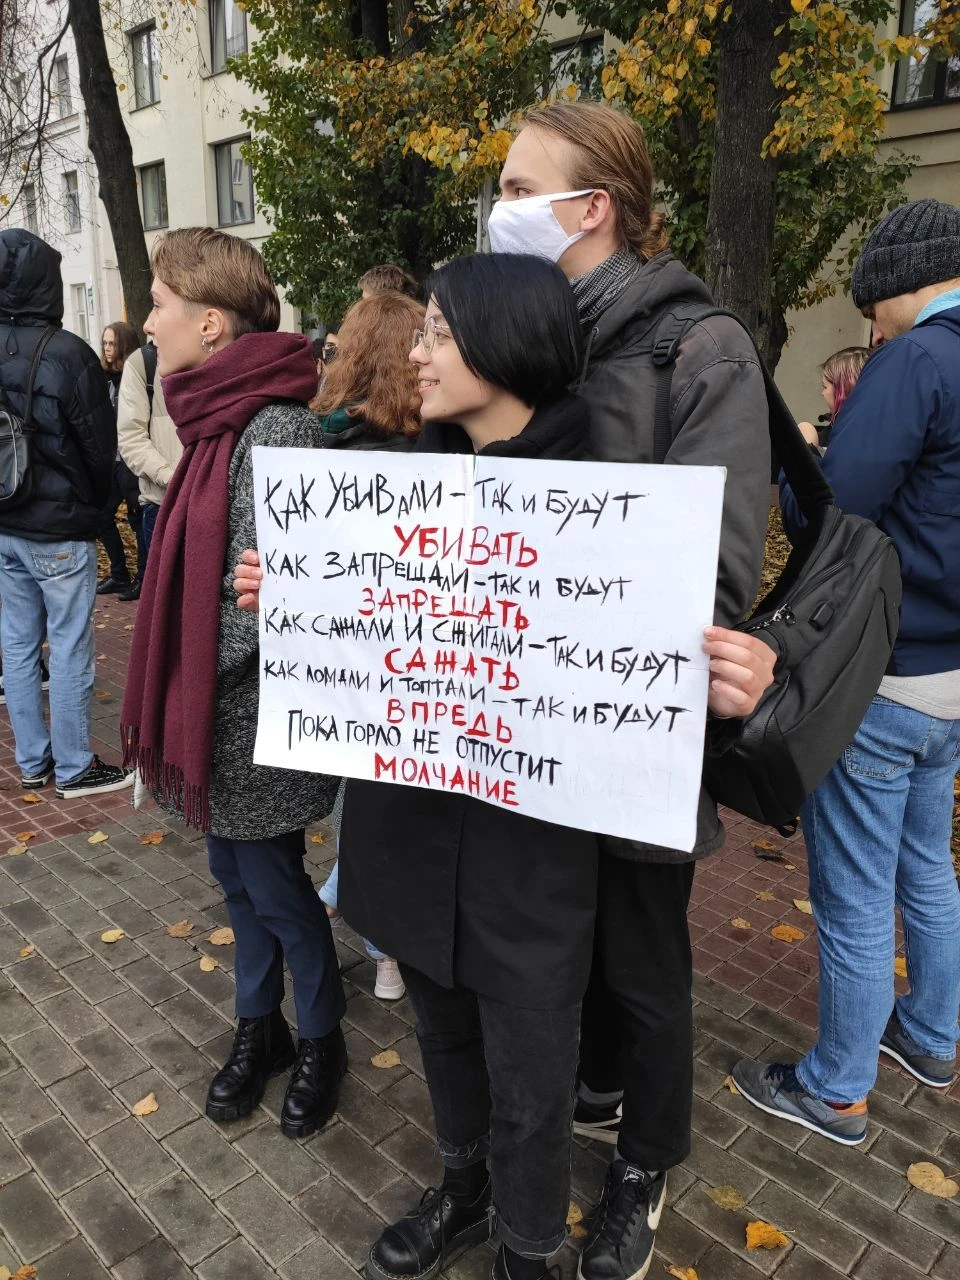 КАК УБИВАЛИ – ТАК И БУДУТ
УБИВАТЬ
КАК ЗАПРЕЩАЛИ – ТАК И БУДУТ
ЗАПРЕЩАТЬ
КАК САЖАЛИ И СЖИГАЛИ – ТАК И БУДУТ
САЖАТЬ
КАК ЛОМАЛИ И ТОПТАЛИ – ТАК И БУДУТ
ВПРЕДЬ
ПОКА ГОРЛО НЕ ОТПУСТИТ
МОЛЧАНИЕ